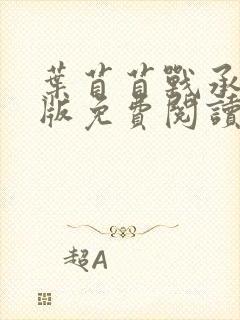 葉苜苜戰承
版免費閱讀
超A